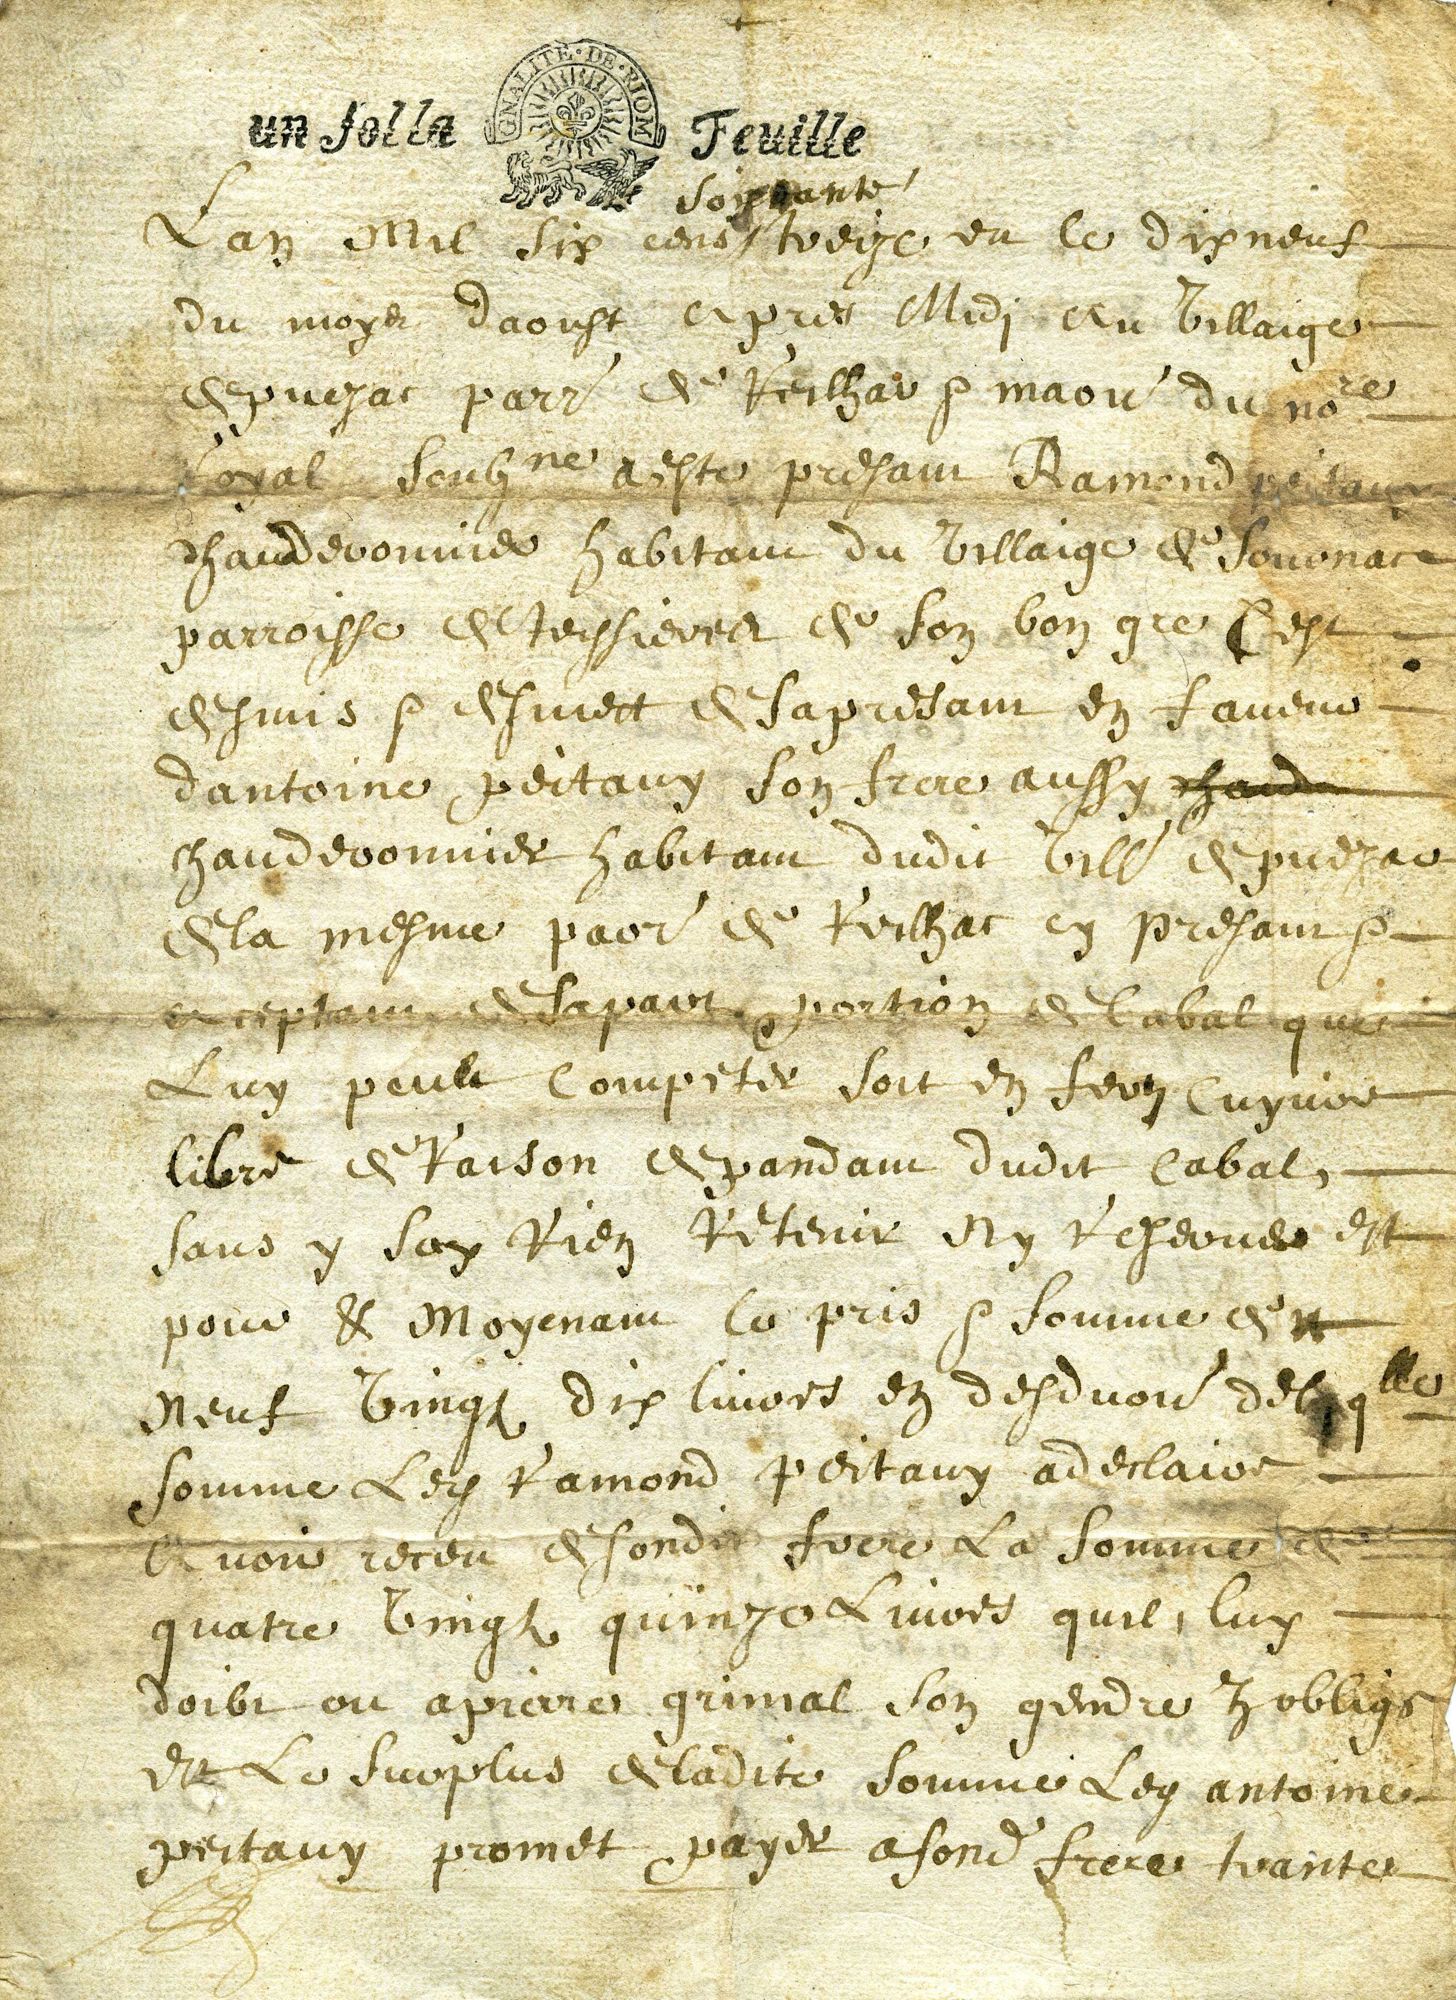 GNALITE·DE·RIOM
un sol la Feuille
soixante
Lan mil six cens treize en le dixneuf
du moys daoust apres midj au villaige
de puezac parr de Reilhac & maon du nore
Royal soubne a este presant Ramond peitauy
chauderonnier habitant du villaige de
parroisse de teissieres de son bon gre cest
desmis & desmect desapresant en faueur
dantoine peitauy son frere aussy chaud
chauderonnier habitant dudit vill de puezac
de la mesme parr de Reilhac cy presant &
acceptant de sa part portion de cabal que
Luy peult competer soit en fer cuyure
libre de Raison depandant dudit cabal
sans y soy Rien Retenir ny Reseruer est
pour & moyenant le pris & somme de
neuf vingt dix liures en desduon de lqlle
somme Ley Ramond peitauy a declaire
auoir receu de sondit frere La somme de
quatre vingt quinze Liures quil luy
doibt ou a pierre grimal son gendre
et Le surplus de ladite somme Ley antoine
peitauy promet payer a sond frere trante